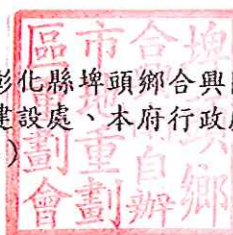 彰化縣埤頭鄉合興
建設處、本府行政處
)
埤頭鄉
合興自辦
市地重劃
區重劃會